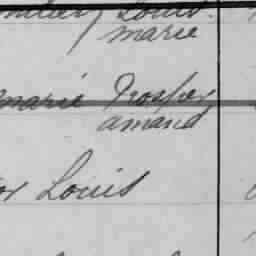 Louis
marie
marie Prosper
amand
or Louis